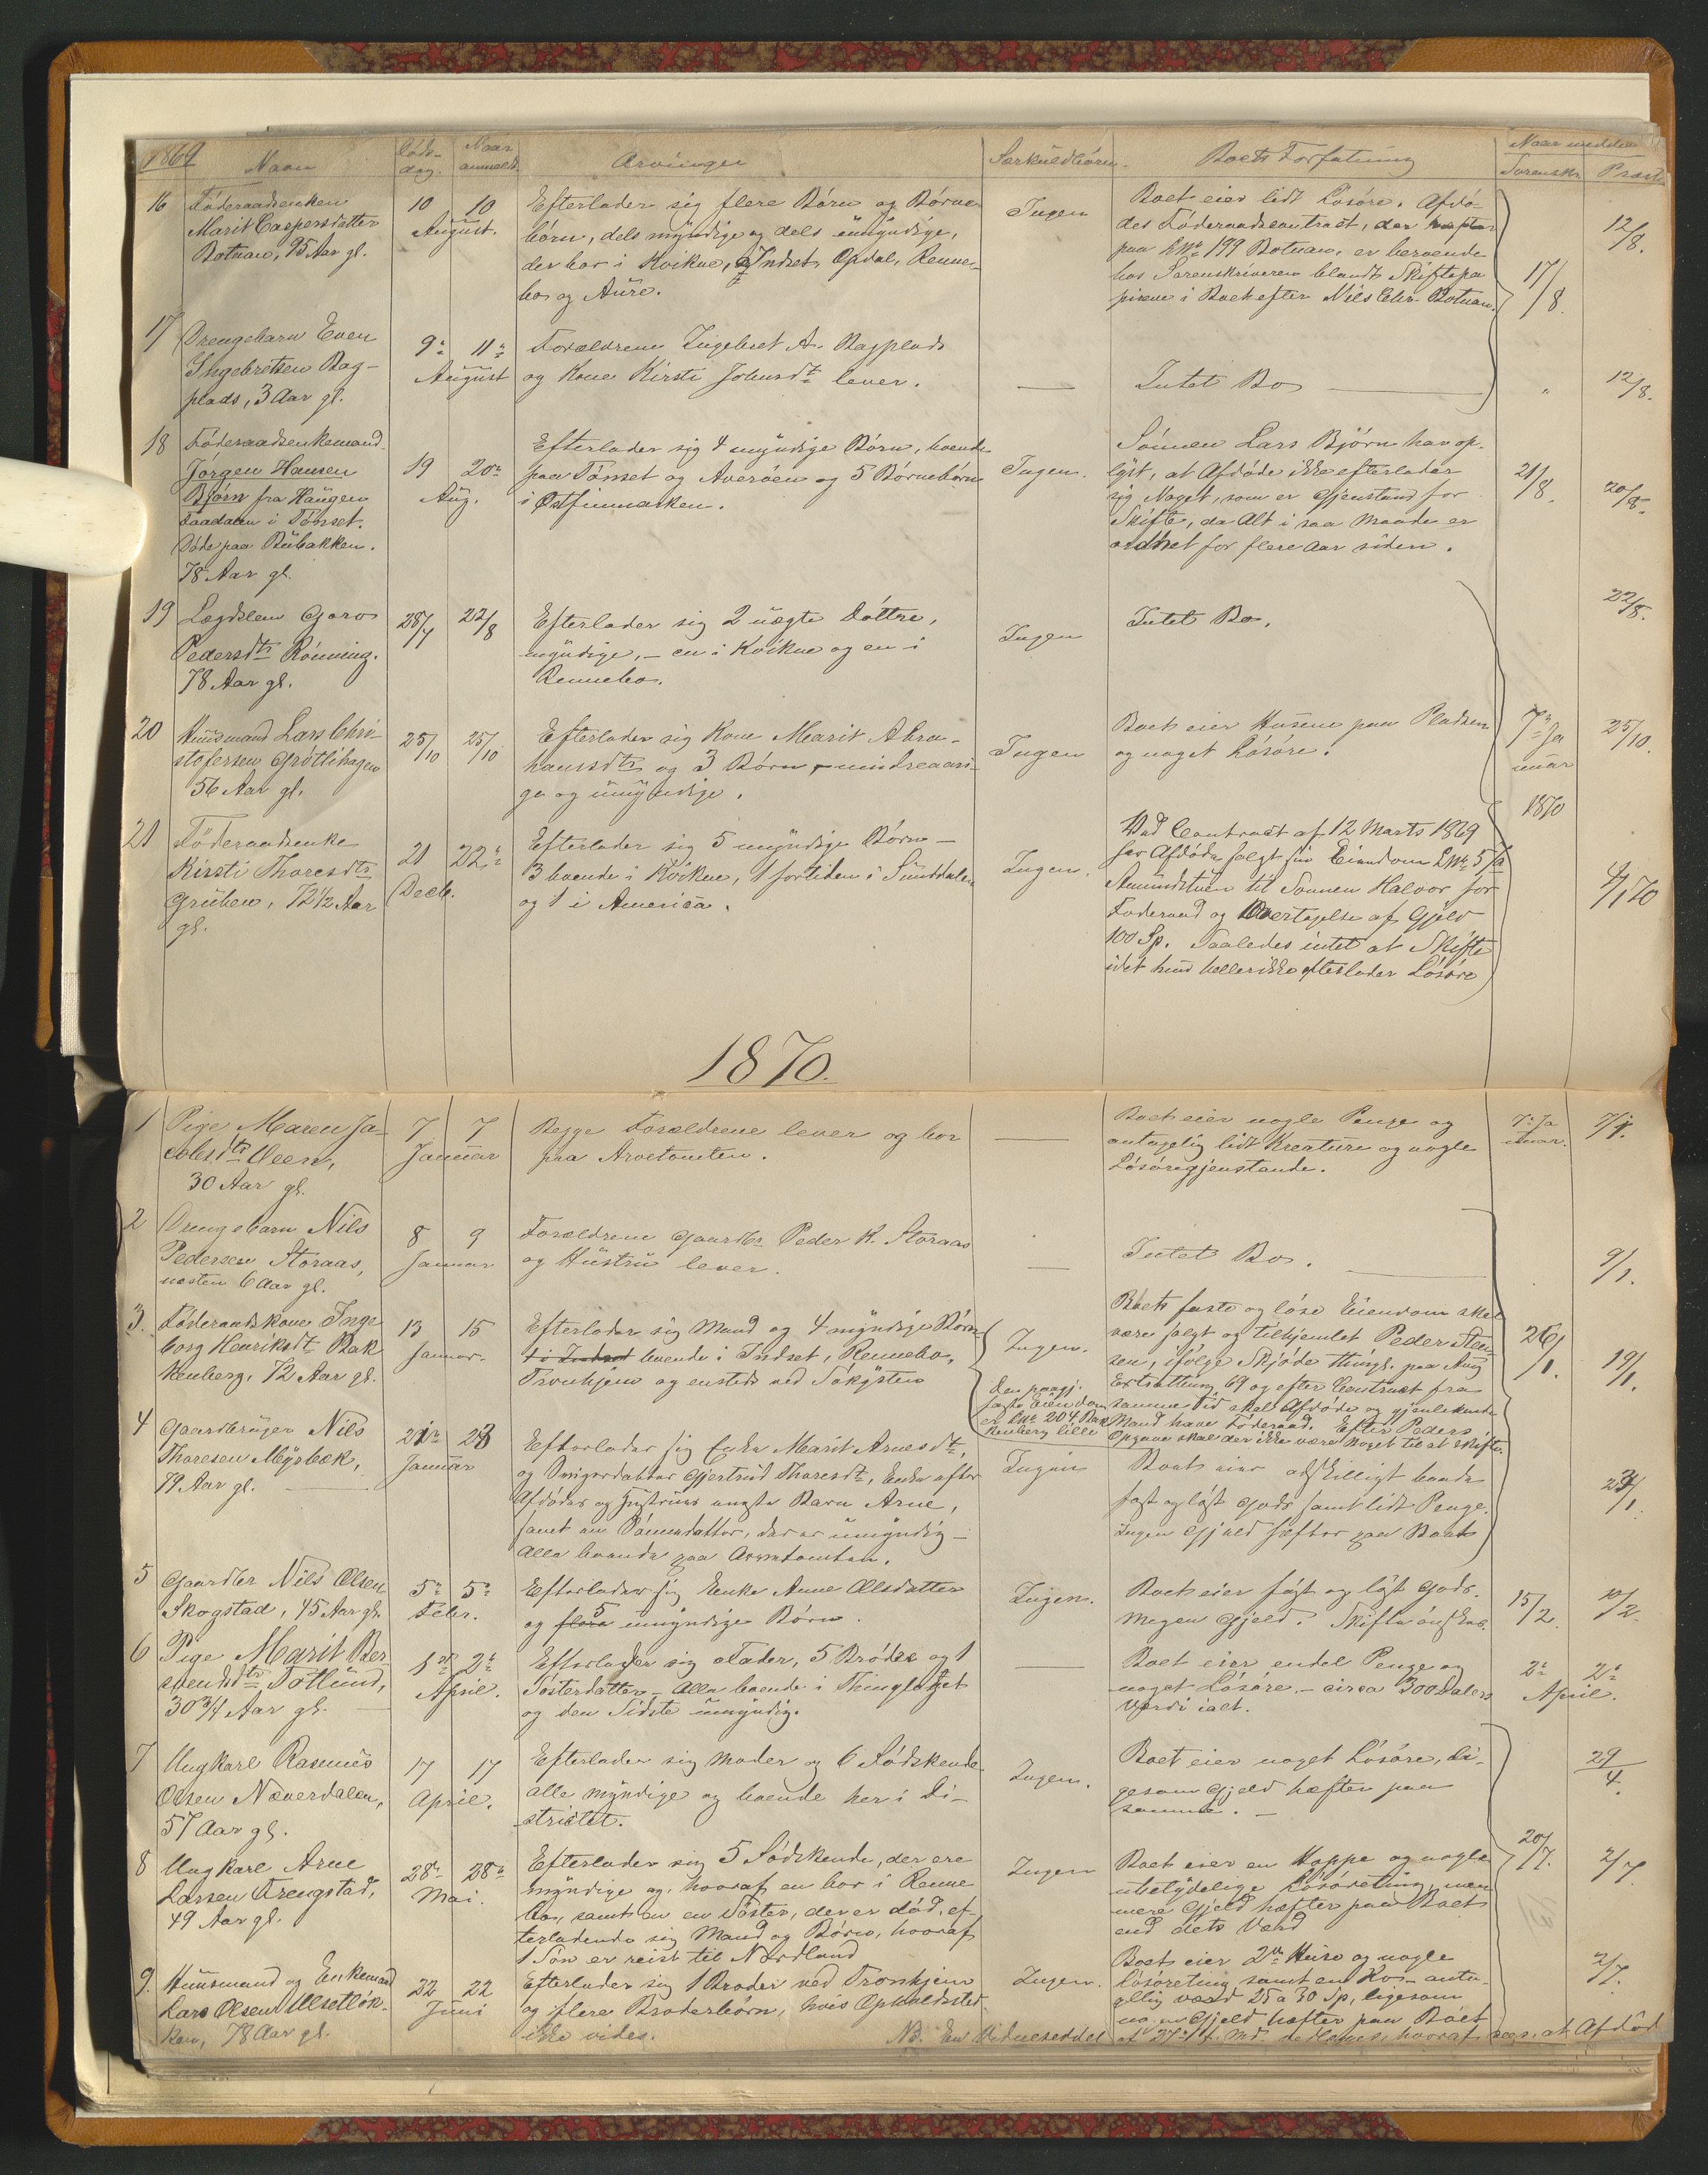 1869 Navn Døds-dag. Naar anmeldt. Arvinger Særkuldbørn. Boets Forfatning Naar meddelt Sorenskr. Præst
16 Föderaadsenken 10 10 Efterlader sig flere Börn og Börne Ingen Boet eier lidt Lösöre. Afdö-
Marit Caspersdatter August. börn, dels myndige og dels umyndige, des Föderaadscontract, der 12/8.
Botnan, 95 Aar gl. der bor i Kvikne, Indset, Opdal, Renne- paa LNo 199 Botnan, er beroende
bo og Aure. hos Sorenskriveren blandt Skiftepa 17/8.
pirene i Boet efter Nils Botnan.
17 Drengebarn Even 9de 11te Forældrene Ingebret A. Bagplads
Ingebretsen Bag- August og Kone Kirsti Johnsdtr lever. — Intet Bo — " 12/8.
plads, 3 Aar gl.
18 Föderaadsenkemand Efterlader sig 4 myndige Börn, boende Sönnen Lars Björn har op-
Jörgen Hansen 19 20de paa Tönset og Averöen og 5 Börnebörn Ingen. lyst, at Afdöde ikke efterlader 21/8. 20/8.
Björn fra Haugen Aug. i Østfinmarken. sig Noget, som er Gjenstand for
Faadalen i Tönset. Skifte, da Alt i saa Maade er
Döde paa Bubakken. ordnet for flere Aar siden.
78 Aar gl.
19 Lægdslem Goro 28/7 22/8 Efterlader sig 2 uægte Döttre, Ingen Intet Bo. 22/8.
Pedersdtr Rönning. myndige, — en i Kvikne og en i
78 Aar gl. Rennebo.
20 Husmand Lars Chri 25/10 25/10 Efterlader sig Kone Marit Abra- Ingen Boet eier Husene paa Pladsen 7de Ja 25/10.
stofersen Gröttihagen hamsdtr og 3 Börn, mindreaari- og noget Lösöre. nuar
56 Aar gl. ge og umyndige. 1870
21 Föderaadsenke Efterlader sig 5 myndige Börn — Ved Contract af 12 Marts 1869
Kirsti Thoresdtr 21 22de 3 boende i Kvikne, 1 fortiden i Sunddalen Ingen. har Afdöde solgt sin Eiendom LNo 5
Gruben, 72 1/2 Aar Decb. og 1 i America. Amundstuen til Sönnen Halvor for 4/1 70
gl. Föderaad og Overtagelse af Gjeld
100 Sp. Saaledes intet at Skifte
idet hun heller ikke efterlader Lösöre
1870.
1 Pige Maren Ja- 7 7 Begge Forældrene lever og bor — Boet eier nogle Penge og 7de Ja 7/1.
cobsdtr Veen, Januar paa Arvetomten. antagelig lidt Kreature og nogle nuar.
30 Aar gl. Lösöregjenstande.
2 Drengebarn Nils 8 9 Forældrene Gaardbr. Peder K. Storaas
Pedersen Storaas, Januar og Hustru lever. — Intet Bo. — 9/1.
næsten 6 Aar gl.
3. Föderaadskone Inge 13 15 Efterlader sig Mand og 4 myndige Börn Boets faste og löse Eiendom skal
borg Henriksdt Bak Januar. boende i Indset, Rennebo, Ingen. være solgt og tilhjemlet Peder Sten- 26/1. 19/1.
kenberg, 72 Aar gl. Tronhjem og ensteds ved Sökysten sen, ifölge Skjöde thingl. paa Aug
Den paagj. Extratthing 69 og efter Contract fra
faste Eiendom samme Tid skal Afdöde og gjenlevende
er LNo 204 Bak Mand have Föderaad. Efter Peders
kenberg lille Opgave skal der ikke være Noget til at skifte.
4 Gaardbruger Nils 21de 23 Efterlader sig Enke Marit Arnesdt, Ingen Boet eier adskilligt baade
Thoresen Myrbæk, Januar og Svigerdatter Gjertrud Thoresdt, Enke efter fast og löst Gods samt lidt Penge. 23/1.
79 Aar gl. — Afdödes og Hustrues eneste Barn Arne, Ingen Gjeld hefter paa Boet
samt en Sönnedatter, der er umyndig —
Alle boende paa Arvetomten.
5 Gaardbr Nils Olsen 5te 5te Efterlader sig Enke Anne Olsdatter Ingen. Boet eier fast og löst Gods. 15/2. 10/2.
Skogstad, 45 Aar gl. Febr. og flere 5 umyndige Börn. Megen Gjeld. Skifte önskes.
6 Pige Marit Ber 1ste 2de Efterlader sig Fader, 5 Brödre og 1 — Boet eier endel Penge og 2de 2de
sendsdtr Totlund, April. Sösterdatter — Alle boende i Thinglaget noget Lösöre. — circa 300 Dalers April.
30 3/4 Aar gl. — og den Sidste umyndig. Værdi ialt.
7 Ungkarl Rasmus 17 17 Efterlader sig Moder og 6 Södskende Ingen. Boet eier noget Lösöre, li- 29/4.
Olsen Næverdalen, April. alle myndige og boende her i Di- gesom Gjeld hæfter paa
57 Aar gl. strictet. samme. —
8 Ungkarl Arne 28de 28de Efterlader sig 5 Södskende, der ere Ingen Boet eier en Hoppe og nogle 20/7. 2/7.
Larsen Trengstad, Mai. myndige og hvoraf en bor i Renne ubetydelige Lösöreting, men
49 Aar gl. bo, samt en Söster, der er död, ef- mere Gjeld hæfter paa Boet
terladende sig Mand og Börn, hvoraf end dets Værd
1 Sön er reist til Nordland
9. Husmand og Enkemand 22 22 Efterlader sig 1 Broder ved Tronhjem Ingen. Boet eier 2de Huse og nogle 2/7.
Lars Olsen Ulsetlök- Juni og flere Broderbörn, hvis Opholdssted Lösöreting samt en Ko — anta-
ken, 78 Aar gl. ikke vides. gelig værd 25 a 30 Sp, ligesom
Gjeld hæfter paa Boet
NB. En Vidneseddel af 27de f. Md. hvoraf at Afdöd